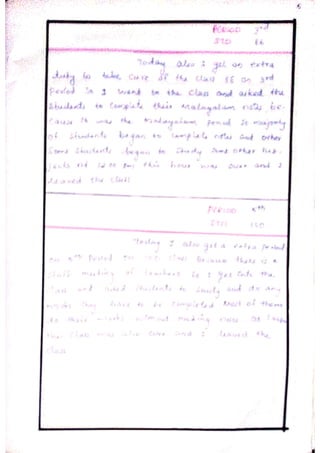 6
PERIOD 3rd
STD 8B
Today also I got an extra
duty to take care of the class 8B on 3rd
Period So I went to the class and asked the
Students to complete their Malayalam notes be-
cause it was the Malayalam period So majority
of Students began to complete notes and other
Some Students began to Study Some other sub-
jects and soon this hour was over and I
leaved the class
PERIOD
STD
Today I also get a extra period
on Period for class because there is a
class meeting of teachers So I get into the
class and asked Students to Study and do any
works they have to be completed Most of them
do their works without making noise
the class was also over and I leaved the
class